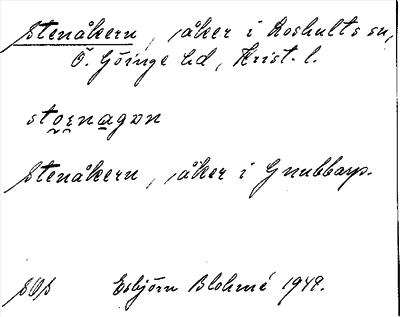 Stenåkern, åker i Loshults sn,
Ö. Göinge hd, Krist. l.
stornagon
Stenåkern, åker i Gnubbarp.
SOS Esbjörn Blohmé 1949.